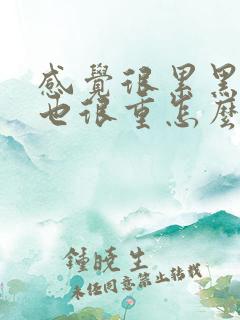 感覺很累黑
也很重怎麼
鍾曉生
未經同意禁止轉載